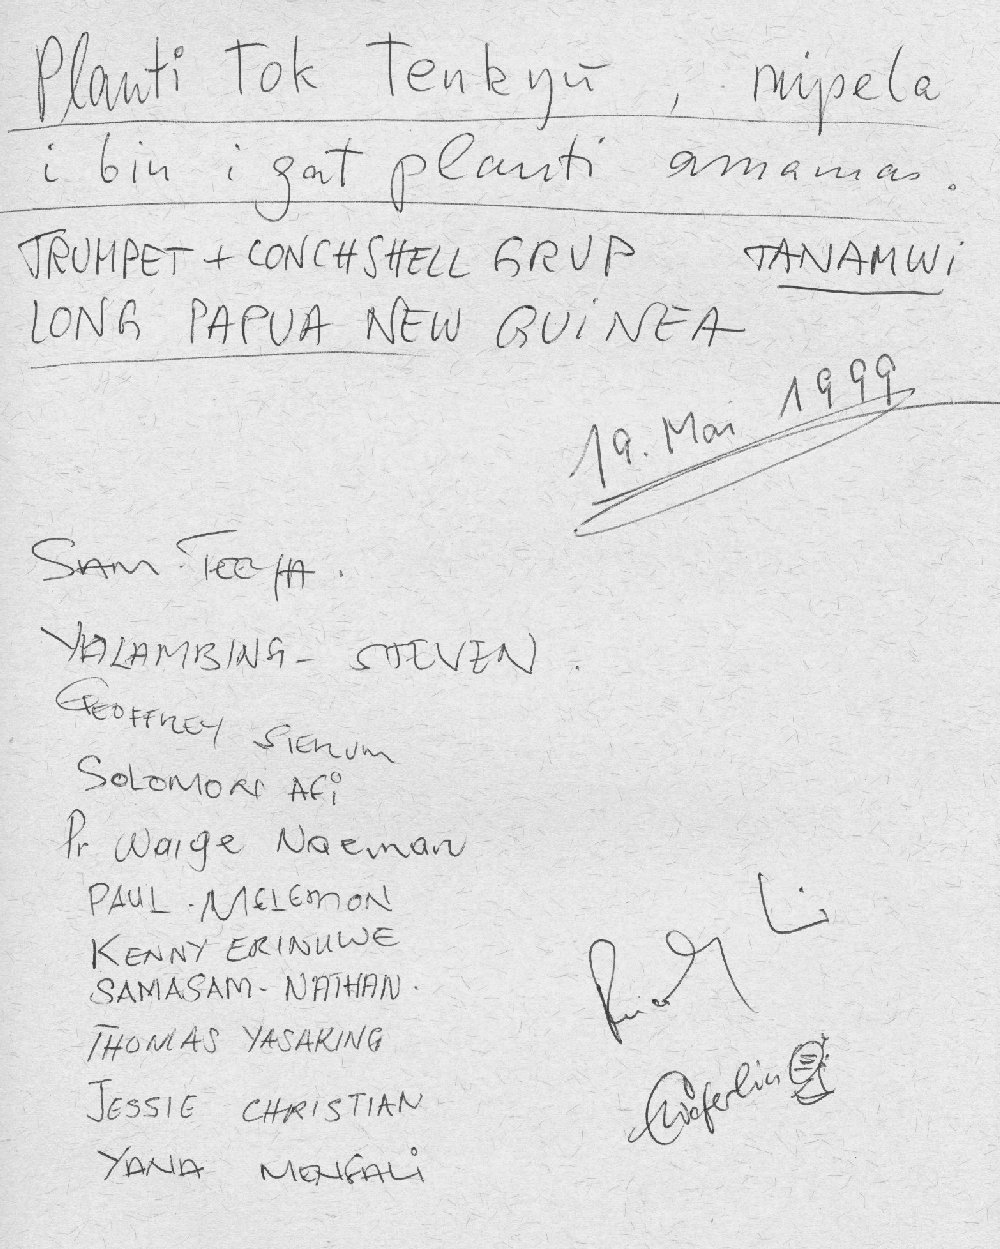 Planti Tok Tenkyu, mipela
i bin i gat planti amamas.
TRUMPET + CONCHSHELL GRUP TANAMWi
LONG PAPUA NEW GUiNEA
19. Mai 1999
SAM TEEHA.
YALAMBING - STEVEN.
GEOFFREY SIERUM
SOLOMON AFi
Pr Waige Naeman
PAUL. MELEMON
KENNY ERINUWE
SAMASAM - NATHAN.
THOMAS YASAKING
JESSIE CHRISTIAN
YANA